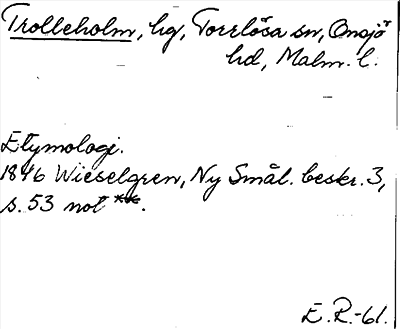 Trolleholm, hg, Torrlösa sn, Onsjö
hd, Malm. l.
Etymologi.
1846 Wieselgren, Ny Smål. beskr. 3,
s. 53 not **.
E. R.-61.